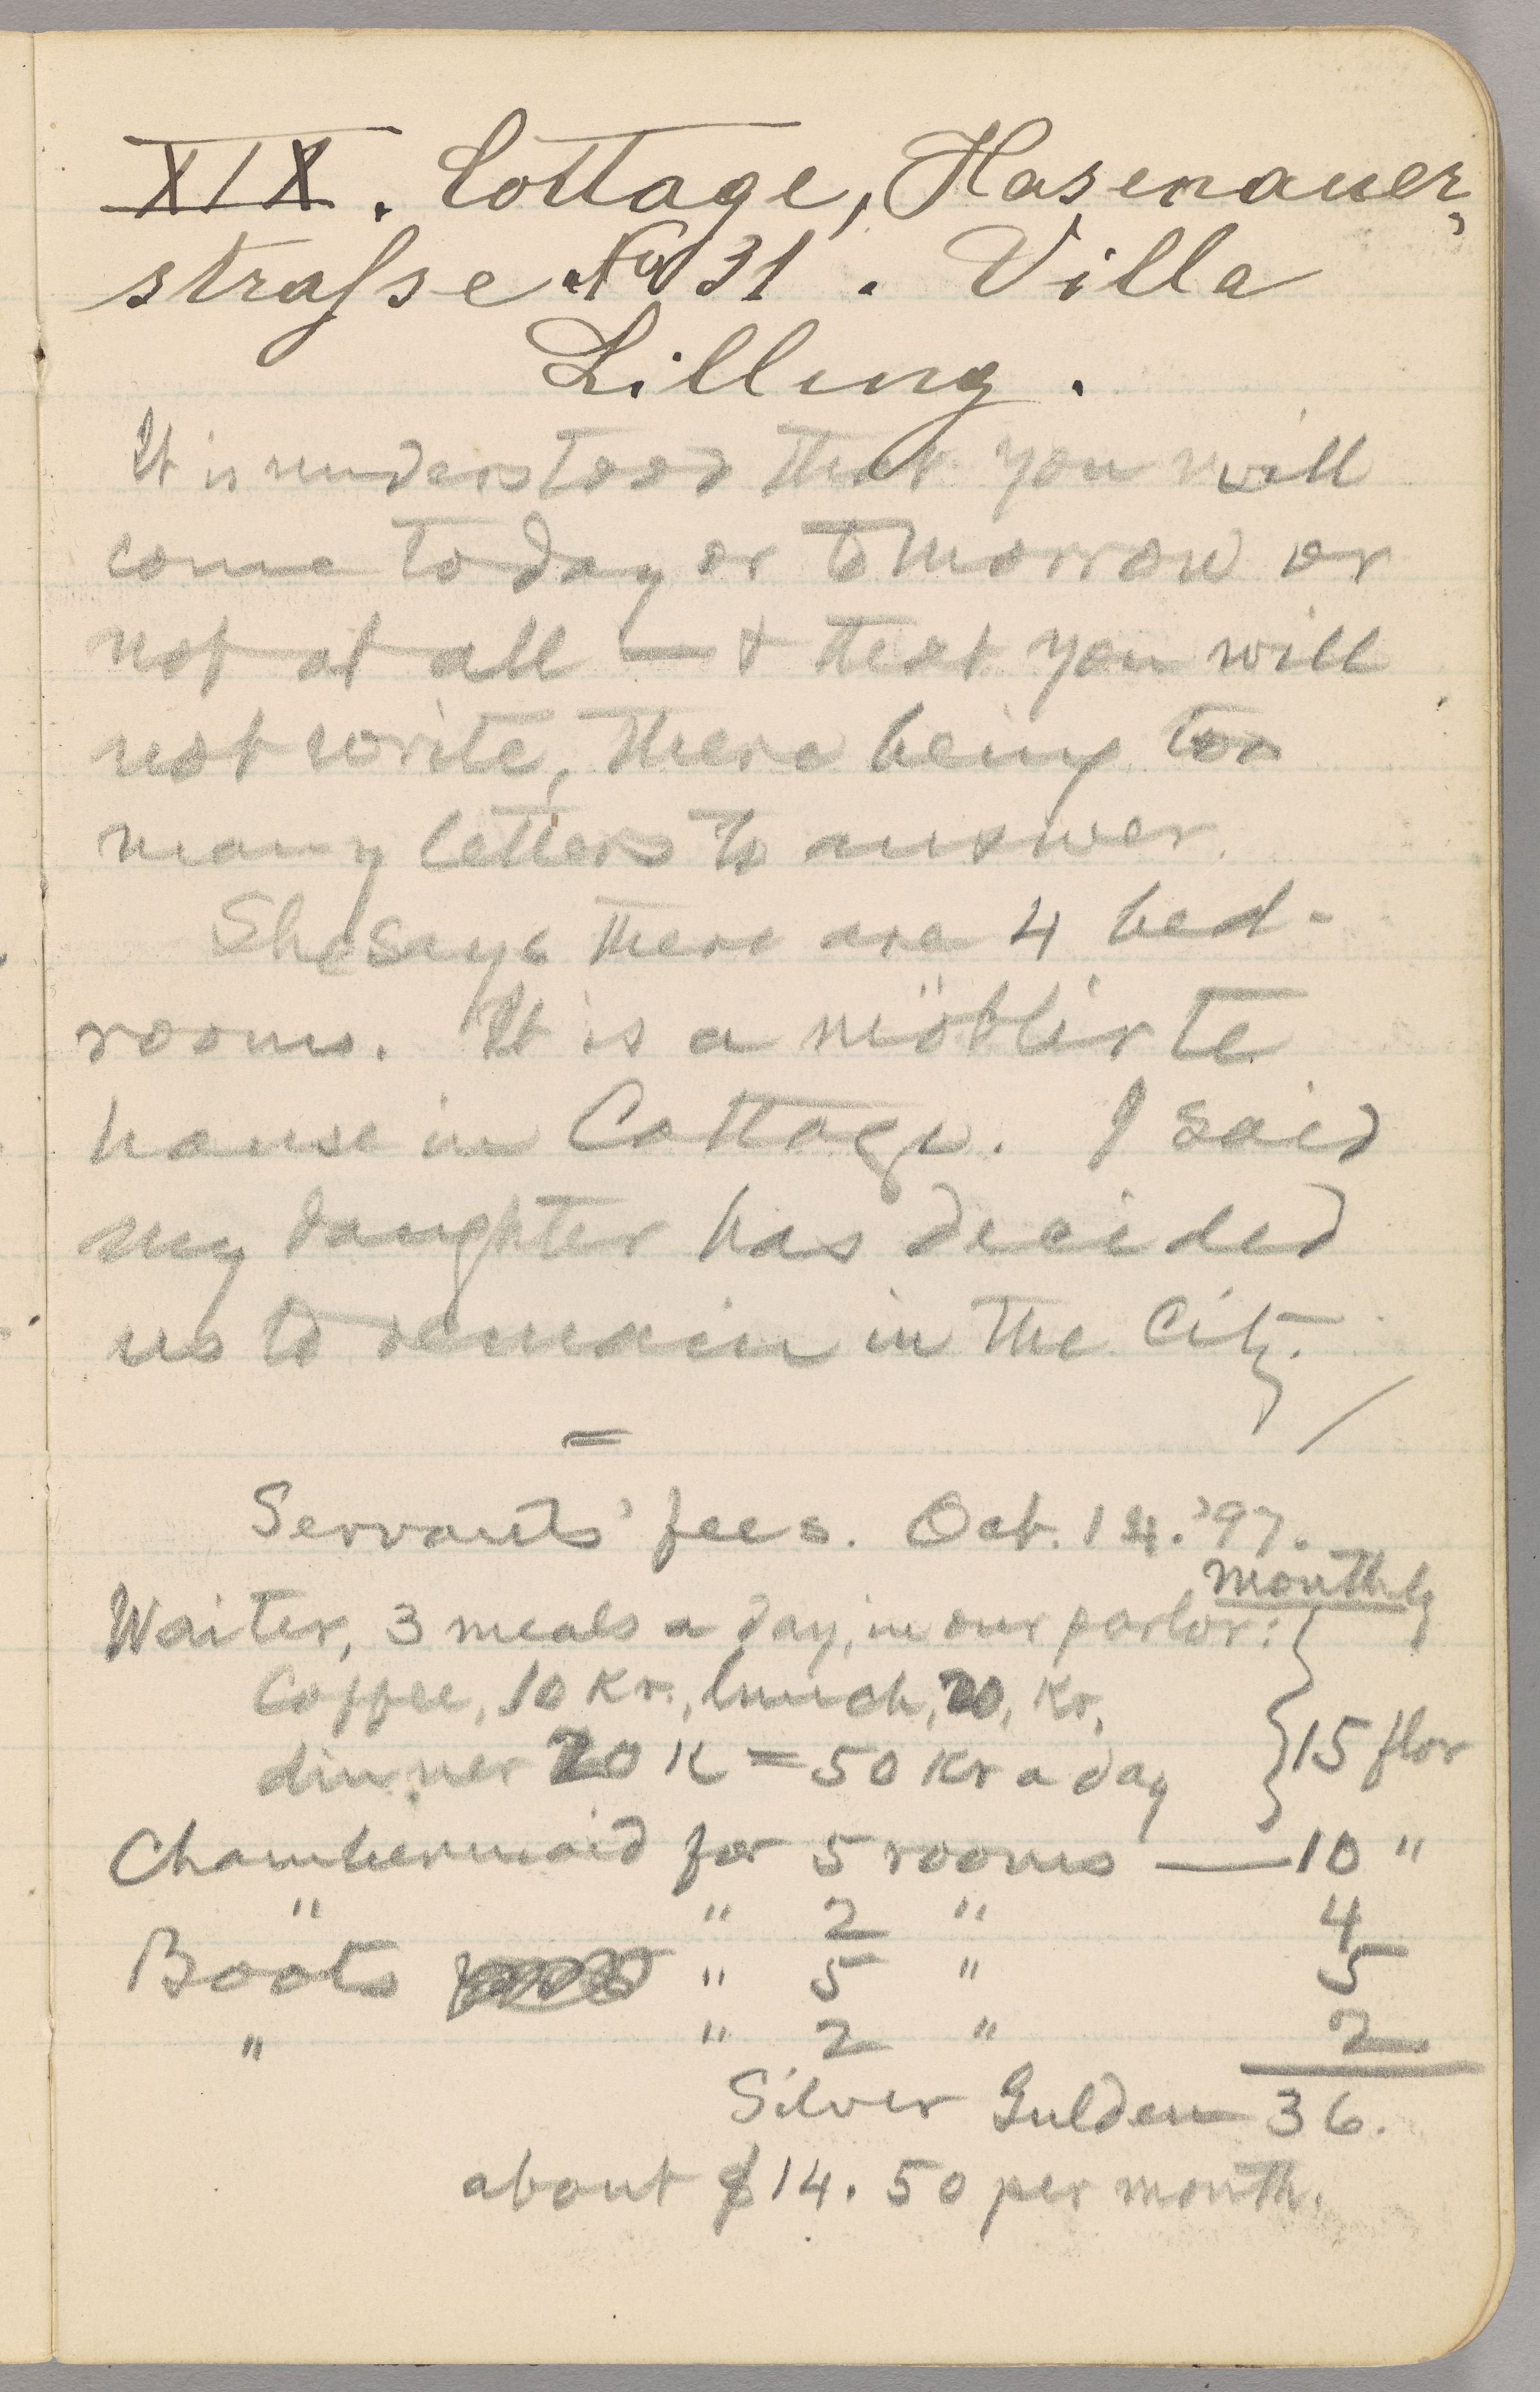 XIX. Cottage, Hasenauer-
straſse No 31. Villa
Lilling.
It is understood that you will
come today or tomorrow or
not at all — & that you will
not write, there being too
many letters to answer.
She says there are 4 bed-
rooms. It is a möblirte
house in Cottage. I said
my daughter has decided
us to remain in the city.
=
Servants' fees. Oct. 14. '97.
monthly
Waiter, 3 meals a day, in our parlor:
Coffee, 10 Kr., lunch, 20, Kr,
dinner 20 K = 50 Kr a day } 15 flor
Chambermaid for 5 rooms — 10 "
" " 2 " 4
Boots " 5 " 5
" " 2 " 2
Silver Gulden — 36.
about $14.50 per month.